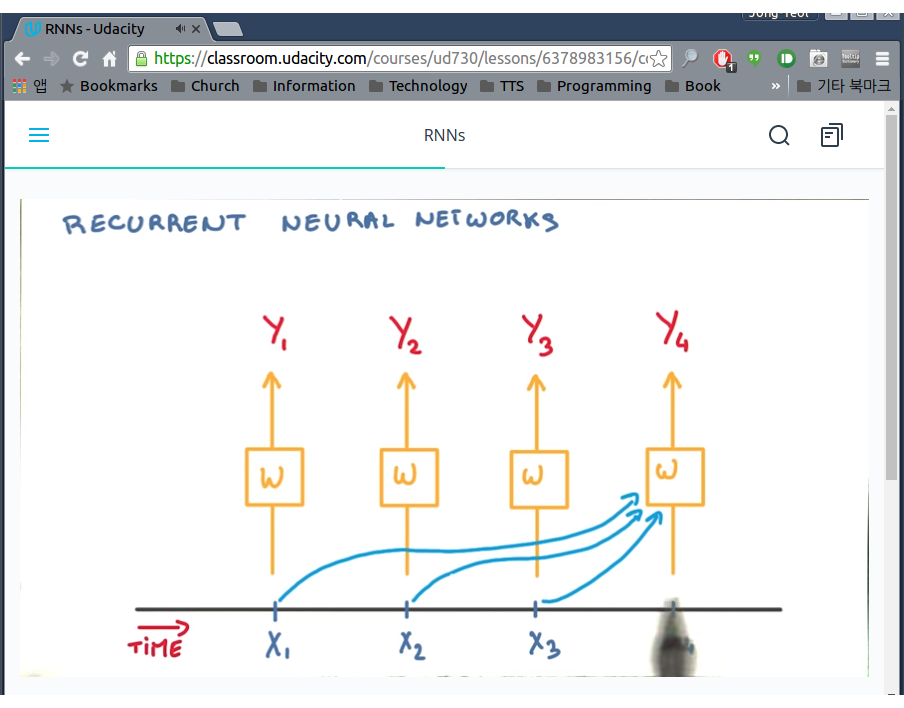 RNNs - Udacity
https://classroom.udacity.com/courses/ud730/lessons/6378983156/c
앱 Bookmarks Church Information Technology TTS Programming Book » 기타 북마크
RNNs
RECURRENT NEURAL NETWORKS
Y1 Y2 Y3 Y4
W W W W
TIME X1 X2 X3